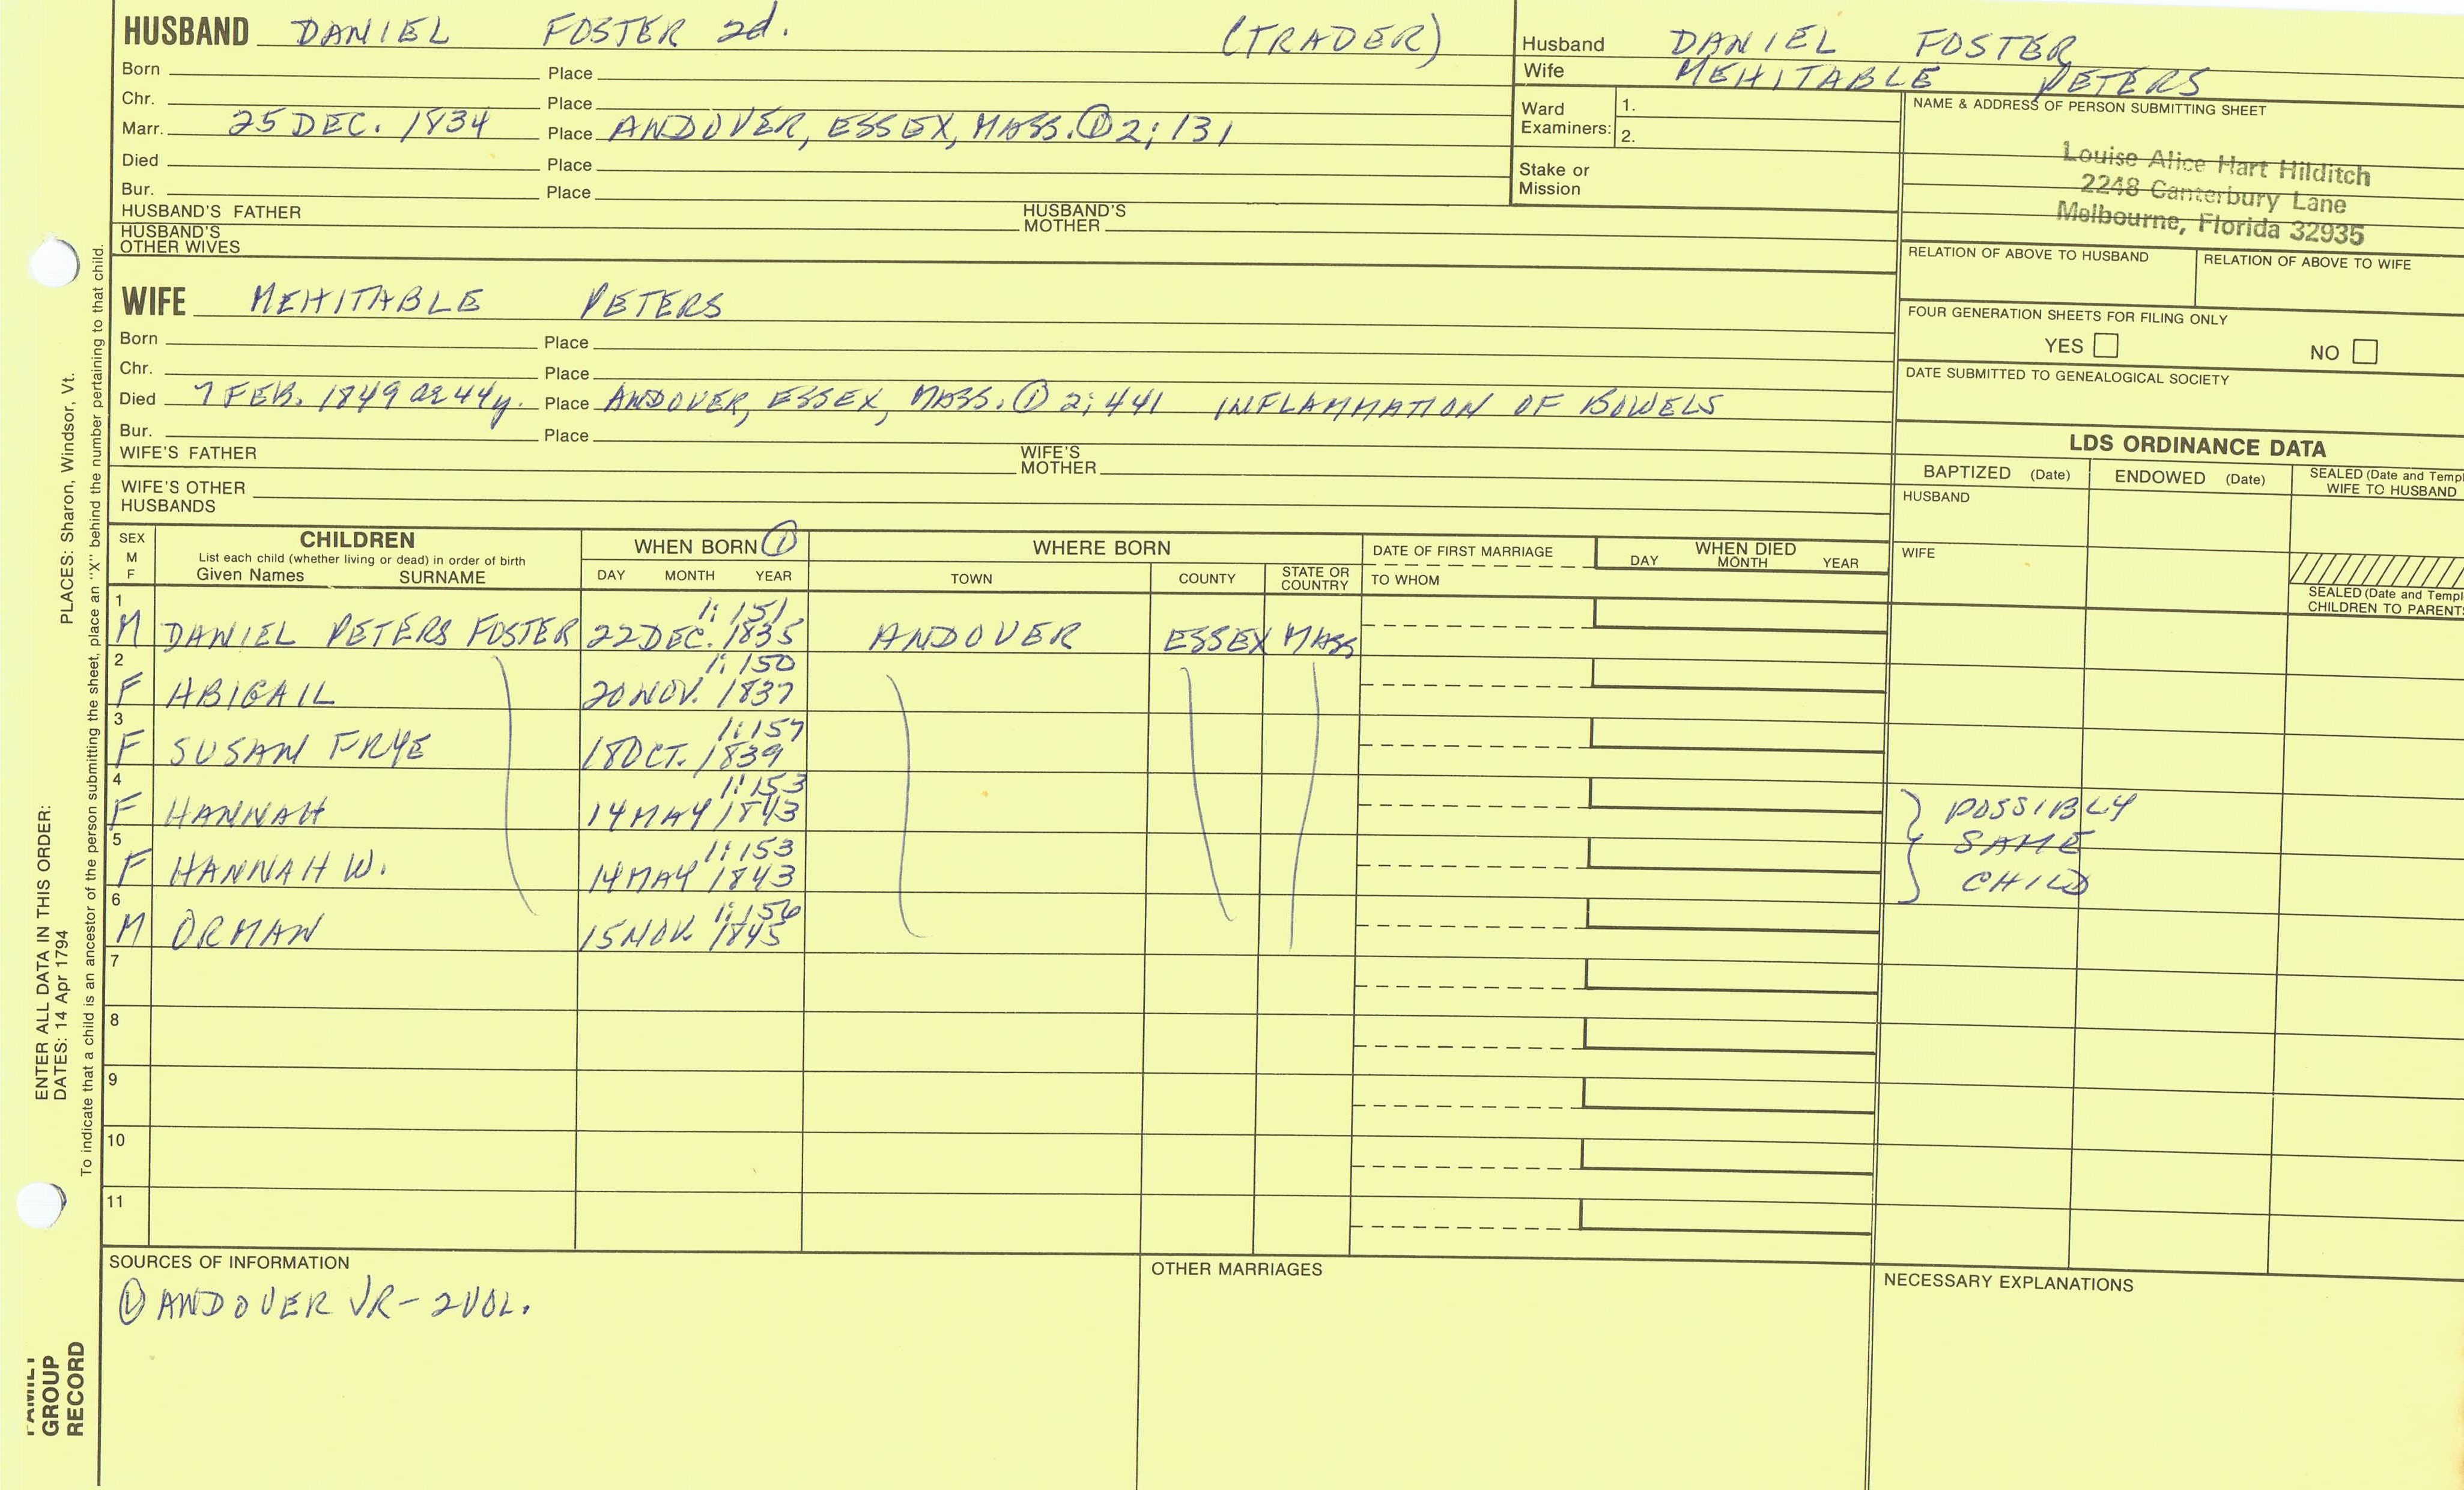 HUSBAND DANIEL FOSTER 2d. (TRADER)
Born Place
Chr. Place
Marr. 25 DEC. 1834 Place ANDOVER, ESSEX, MASS. ① 2; 131
Died Place
Bur. Place
HUSBAND'S FATHER HUSBAND'S MOTHER
HUSBAND'S OTHER WIVES
Husband DANIEL FOSTER
Wife MEHITABLE PETERS
Ward Examiners: 1.
2.
Stake or Mission
NAME & ADDRESS OF PERSON SUBMITTING SHEET
Louise Alice Hart Hilditch
2248 Canterbury Lane
Melbourne, Florida 32935
RELATION OF ABOVE TO HUSBAND RELATION OF ABOVE TO WIFE
FOUR GENERATION SHEETS FOR FILING ONLY
YES NO
DATE SUBMITTED TO GENEALOGICAL SOCIETY
WIFE MEHITABLE PETERS
Born Place
Chr. Place
Died 7 FEB. 1849 ae 44y. Place ANDOVER, ESSEX, MASS. ① 2; 441 INFLAMMATION OF BOWELS
Bur. Place
WIFE'S FATHER WIFE'S MOTHER
WIFE'S OTHER HUSBANDS
LDS ORDINANCE DATA
BAPTIZED (Date) ENDOWED (Date) SEALED (Date and Templ
WIFE TO HUSBAND
HUSBAND
WIFE
SEALED (Date and Templ
CHILDREN TO PARENTS
SEX M F CHILDREN WHEN BORN ① WHERE BORN DATE OF FIRST MARRIAGE WHEN DIED
List each child (whether living or dead) in order of birth
Given Names SURNAME DAY MONTH YEAR TOWN COUNTY STATE OR COUNTRY TO WHOM DAY MONTH YEAR
1 1: 151
M DANIEL PETERS FOSTER 22 DEC. 1835 ANDOVER ESSEX MASS
2 1: 150
F ABIGAIL 20 NOV. 1837
3 1: 157
F SUSAN FRYE 18 OCT. 1839
4 1: 153
F HANNAH 14 MAY 1843
5 1: 153
F HANNAH W. 14 MAY 1843
} POSSIBLY
SAME
CHILD
6 1: 156
M ORMAN 15 NOV. 1845
7
8
9
10
11
SOURCES OF INFORMATION
① ANDOVER VR - 2 VOL.
OTHER MARRIAGES
NECESSARY EXPLANATIONS
PLACES: Sharon, Windsor, Vt.
To indicate that a child is an ancestor of the person submitting the sheet, place an "X" behind the number pertaining to that child.
ENTER ALL DATA IN THIS ORDER:
DATES: 14 Apr 1794
FAMILY
GROUP
RECORD